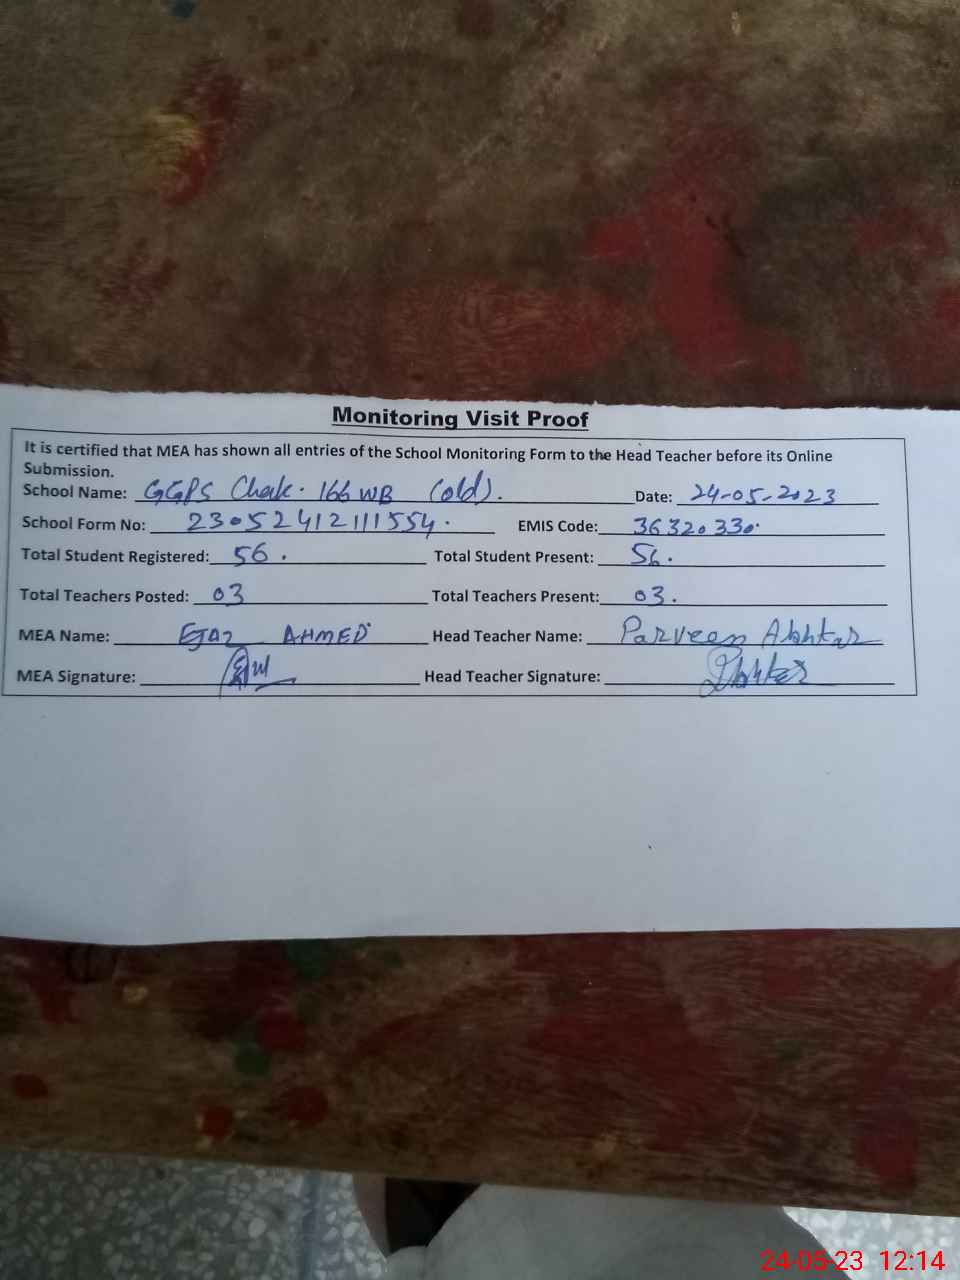 Monitoring Visit Proof
It is certified that MEA has shown all entries of the School Monitoring Form to the Head Teacher before its Online
Submission.
School Name: GGPS Chak. 166 WB (old). Date: 24-05-2023
School Form No: 23052412111554. EMIS Code: 36320330.
Total Student Registered: 56. Total Student Present: 56.
Total Teachers Posted: 03 Total Teachers Present: 03.
MEA Name: EJAZ AHMED Head Teacher Name: Parveen Akhtar
MEA Signature: Head Teacher Signature: Akhter
24-05-23 12:14